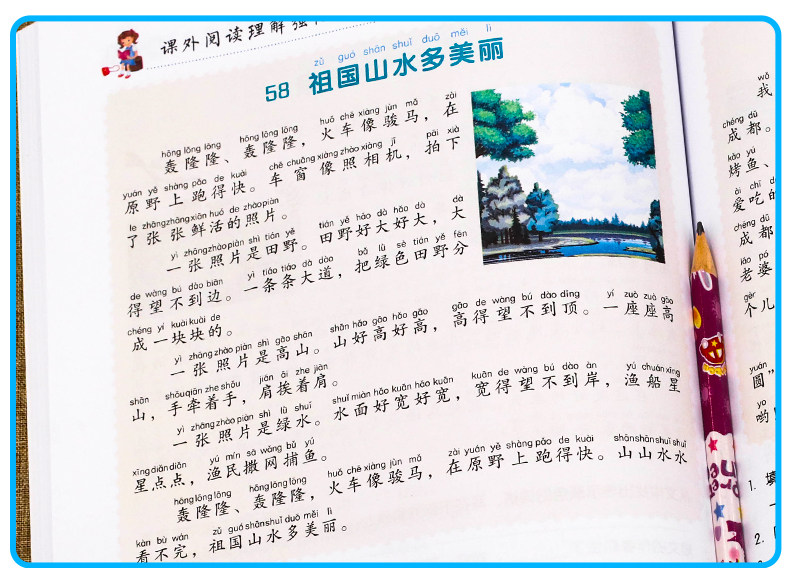 课外阅读理解强
zǔ guó shān shuǐ duō měi lì
58 祖国山水多美丽
hōng lōng lōng hōng lōng lōng huǒ chē xiàng jùn mǎ zài
轰隆隆、轰隆隆,火车像骏马,在
yuán yě shàng pǎo de kuài chē chuāng xiàng zhào xiàng jī pāi xià
原野上跑得快。车窗像照相机,拍下
le zhāng zhāng xiān huó de zhào piàn
了张张鲜活的照片。
yì zhāng zhào piàn shì tián yě tián yě hǎo dà hǎo dà dà
一张照片是田野。田野好大好大,大
de wàng bú dào biān yì tiáo tiáo dà dào bǎ lǜ sè tián yě fēn
得望不到边。一条条大道,把绿色田野分
chéng yí kuài kuài de
成一块块的。
yì zhāng zhào piàn shì gāo shān shān hǎo gāo hǎo gāo gāo de wàng bú dào dǐng yí zuò zuò gāo
一张照片是高山。山好高好高,高得望不到顶。一座座高
shān shǒu qiān zhe shǒu jiān āi zhe jiān
山,手牵着手,肩挨着肩。
yì zhāng zhào piàn shì lǜ shuǐ shuǐ miàn hǎo kuān hǎo kuān kuān de wàng bú dào àn yú chuán xīng
一张照片是绿水。水面好宽好宽,宽得望不到岸,渔船星
xīng diǎn diǎn yú mín sā wǎng bǔ yú
星点点,渔民撒网捕鱼。
hōng lōng lōng hōng lōng lōng huǒ chē xiàng jùn mǎ zài yuán yě shàng pǎo de kuài shān shān shuǐ shuǐ
轰隆隆、轰隆隆,火车像骏马,在原野上跑得快。山山水水
kàn bù wán zǔ guó shān shuǐ duō měi lì
看不完,祖国山水多美丽。
wǒ
我
chéng dū
成都。
kǎo yú
烤鱼、
ài chī
爱吃的
chéng dū
成都
lǎo pó
老婆
gèr
个儿
yuán
圆”
yo
哟!
1. 填
2.